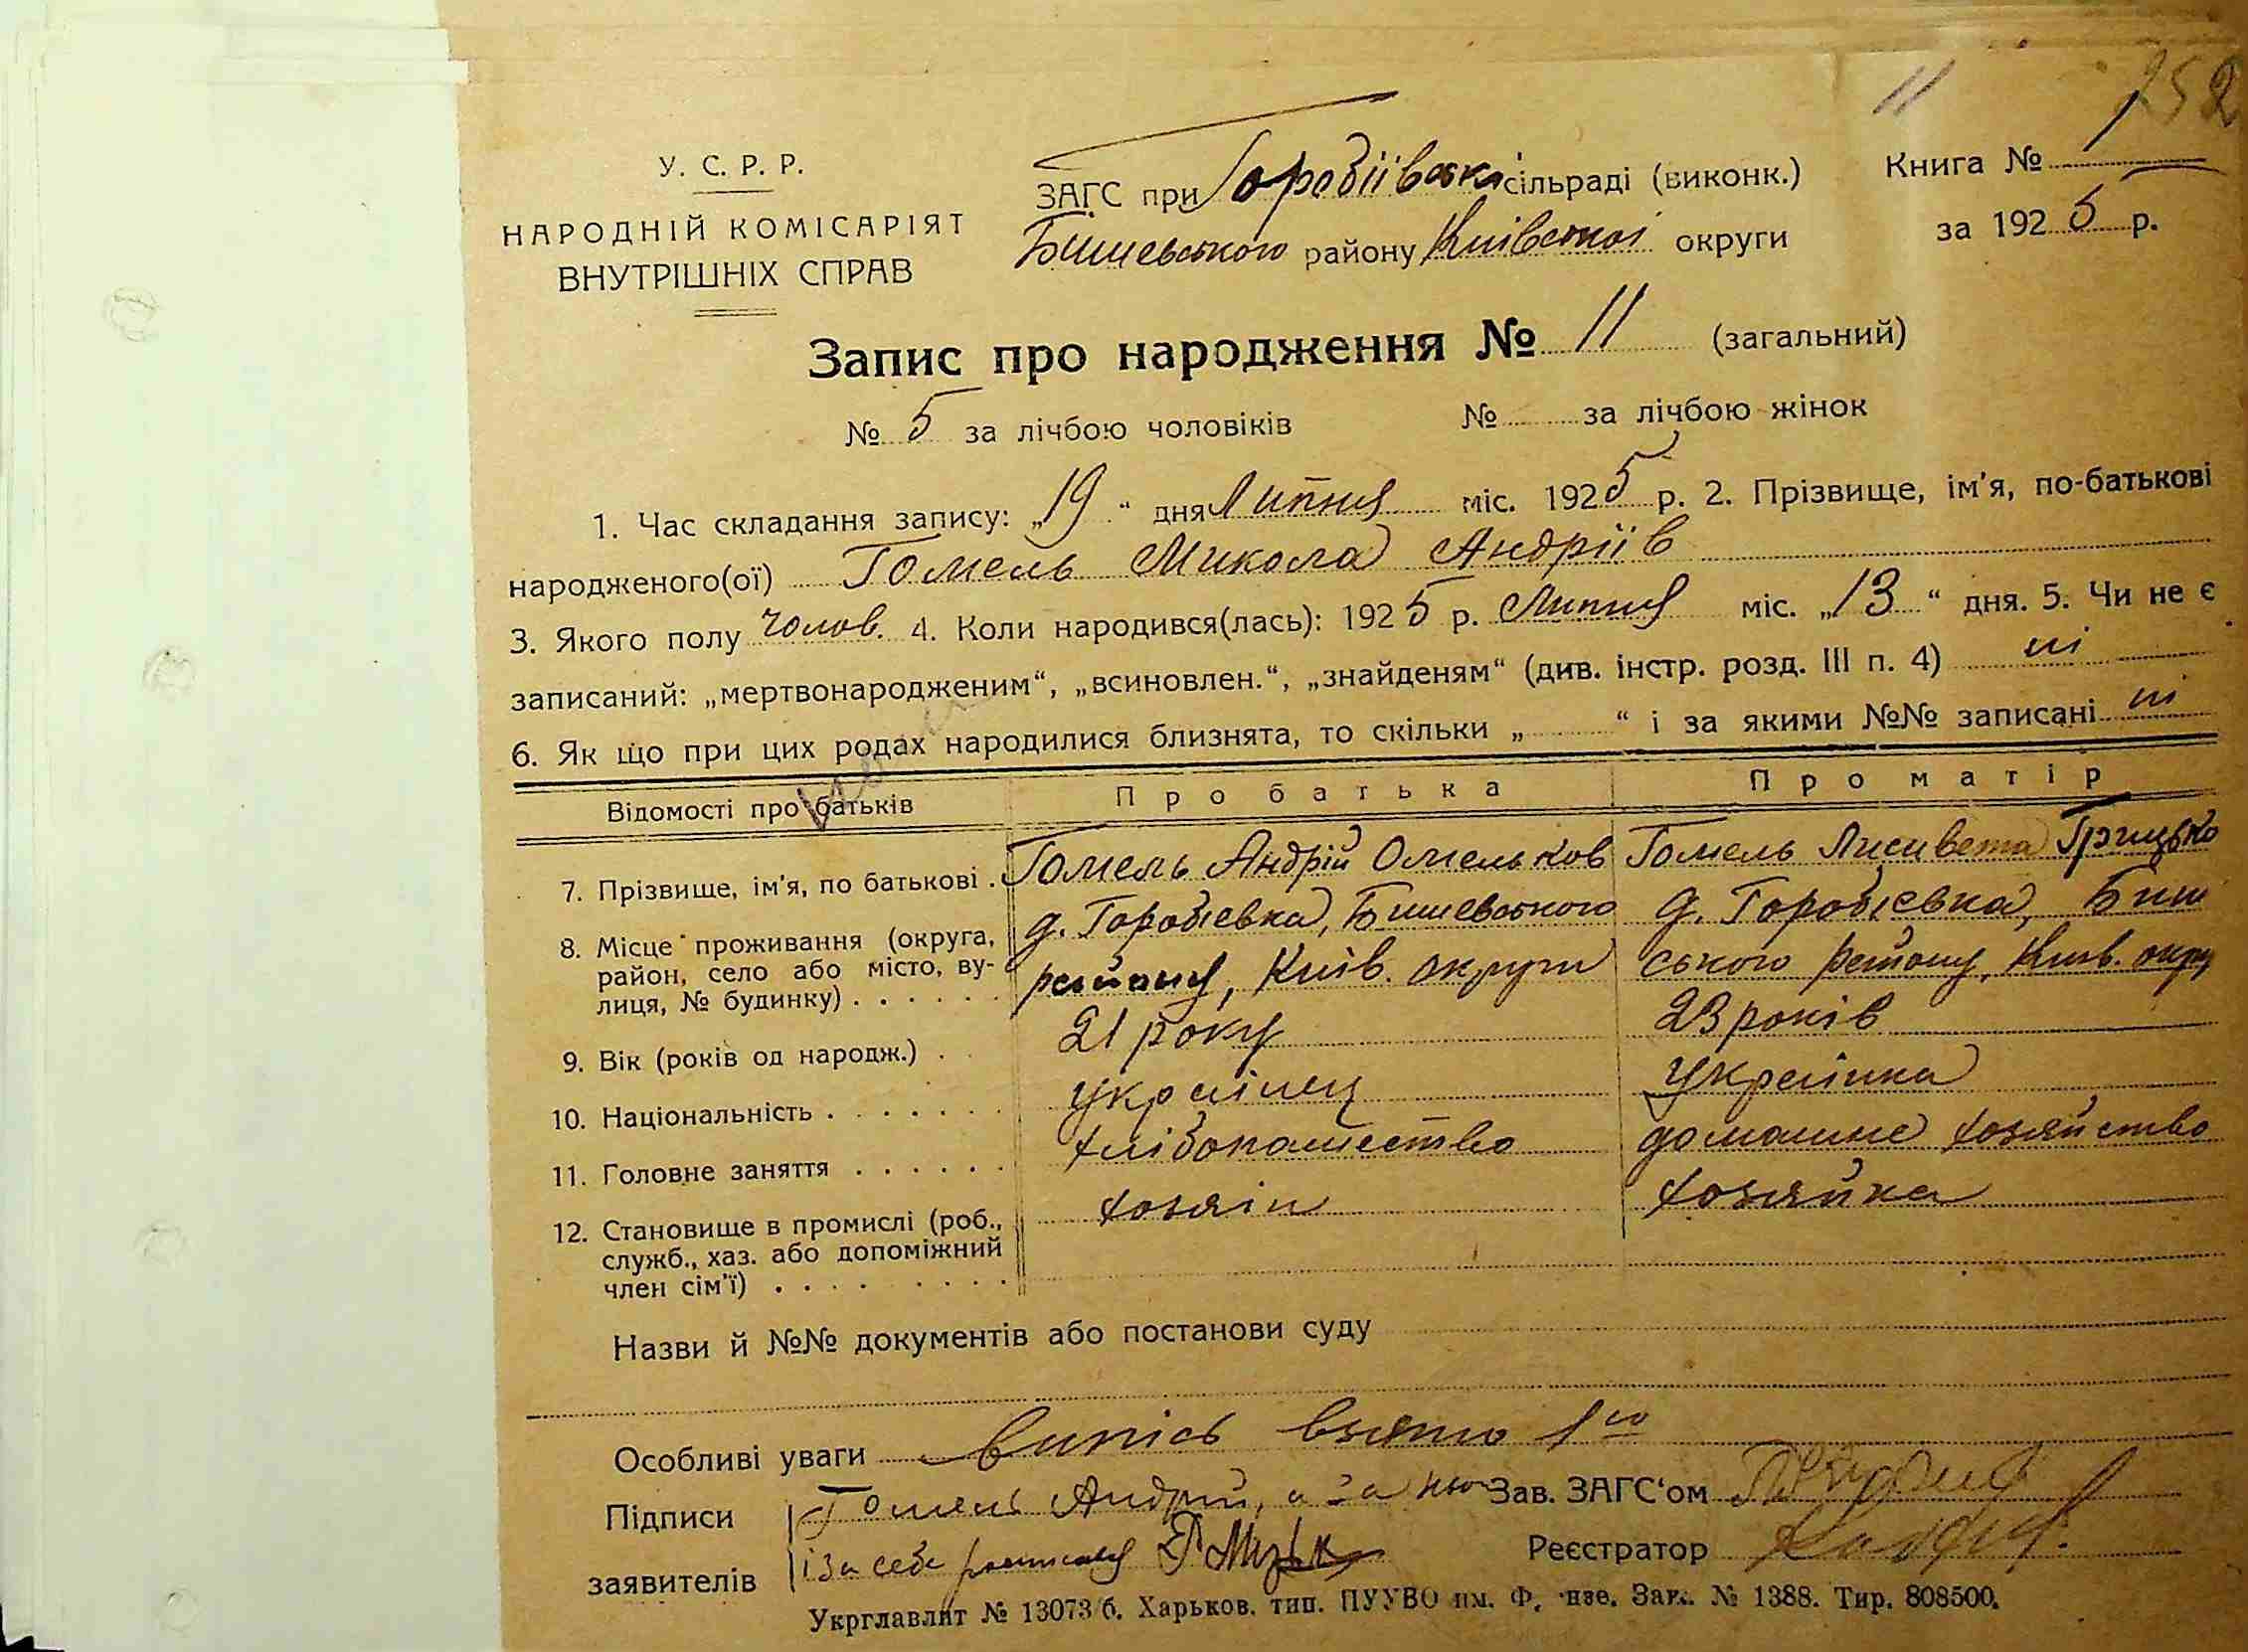 11 252
У. С. Р. Р.
НАРОДНІЙ КОМІСАРІЯТ
ВНУТРІШНІХ СПРАВ
ЗАГС при Горобіївськ сільраді (виконк.)
Бишевського району Київської округи
Книга № 1
за 1925 р.
Запис про народження № 11 (загальний)
№ 5 за лічбою чоловіків № за лічбою жінок
1. Час складання запису: „19“ дня Липня міс. 1925 р. 2. Прізвище, ім'я, по-батькові
народженого(ої) Гомель Микола Андріїв
3. Якого полу чолов. 4. Коли народився(лась): 1925 р. Липня міс. „13“ дня. 5. Чи не є
записаний: „мертвонародженим“, „всиновлен.“, „знайденям“ (див. інстр. розд. III п. 4) ні
6. Як що при цих родах народилися близнята, то скільки „ “ і за якими №№ записані ні
Відомості про батьків Про батька Про матір
7. Прізвище, ім'я, по батькові . Гомель Андрій Омельков Гомель Лисивета Грицько
8. Місце проживання (округа, район, село або місто, вулиця, № будинку) . . . . . .
д. Горобіевка, Бишевського
району, Київ. округи
д. Горобіевка, Биш
ського району, Київ. окру
9. Вік (років од народж.) . . 21 року 23 років
10. Національність . . . . . . . українец українка
11. Головне заняття . . . . . . хлібопашество домашне хозяйство
12. Становище в промислі (роб., хозяін хозяйка
служб., хаз. або допоміжний
член сім'ї) . . . . . . . . .
Назви й №№ документів або постанови суду
Особливі уваги випісь взято 1го
Підписи Гомель Андрій, а за ньо
заявителів і за себе росписався
Зав. ЗАГС'ом
Реєстратор
Укрглавліт № 13073/б. Харьков. тип. ПУУВО им. Ф. нзе. Зак. № 1388. Тир. 808500.